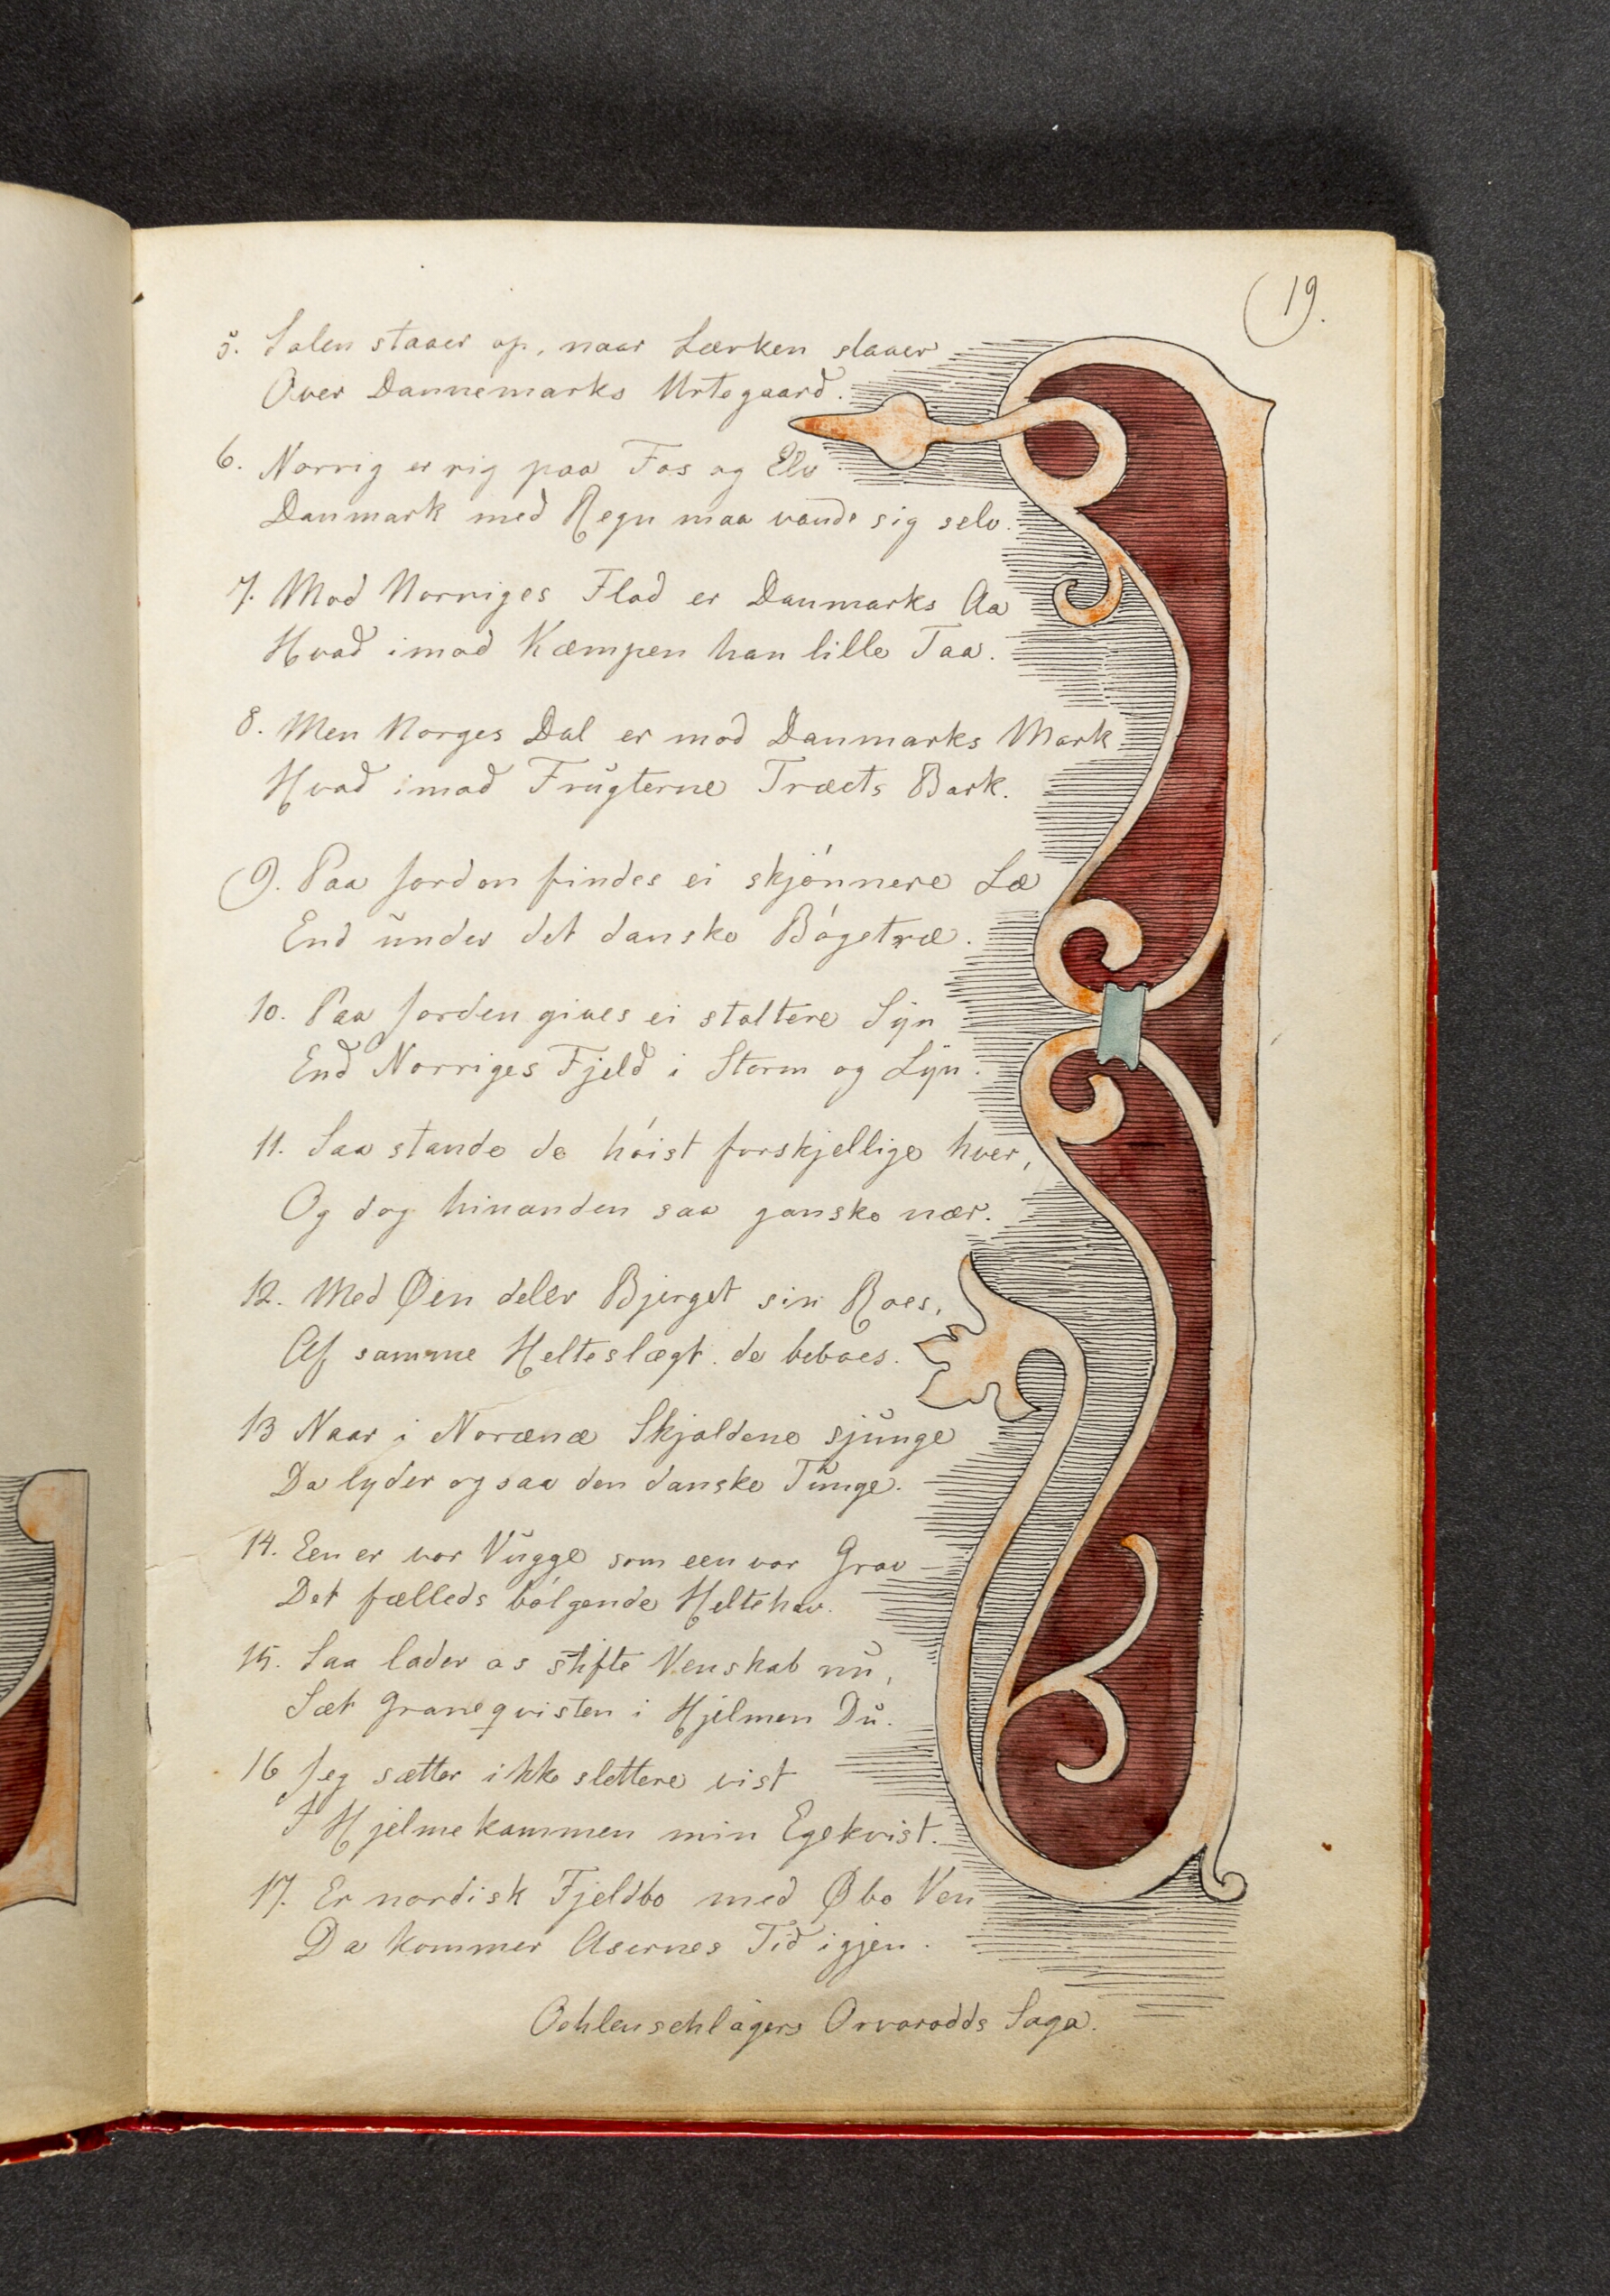 19.
5. Solen staaer op, naar Lærken slaaer
Over Dannemarks Urtegaard.
6. Norrig er rig paa Fos og Elv
Danmark med Regn maa vande sig selv.
7. Mod Norriges Flod er Danmarks Aa
Hvad imod Kæmpen han lille Taa.
8. Men Norges Dal er mod Danmarks Mark
Hvad imod Frugterne Træets Bark.
9. Paa Jorden findes ei skjönnere Læ
End under det danske Bögetræ.
10. Paa Jorden gives ei stoltere Syn
End Norriges Fjeld i Storm og Lyn.
11. Saa stande de höist forskjellige hver,
Og dog hinanden saa ganske nær.
12. Med Øen deler Bjerget sin Roes,
Af samme Helteslægt de beboes.
13 Naar i Norænæ Skjaldene sjunge
Da lyder ogsaa den danske Tunge.
14. Een er vor Vugge som een vor Grav
Det fælleds bölgendeHeltehav.
15. Saa lader os stifte Venskab nu,
Sæt Graneqvisten i Hjelmen Du.
16 Jeg sætter ikke slettere vist
I Hjelmekammen min Egekvist.
17. Er nordisk Fjeldbo med Øbo Ven
Da kommer Asernes Tid igjen.
Oehlenschlägers Orvarodds Saga.